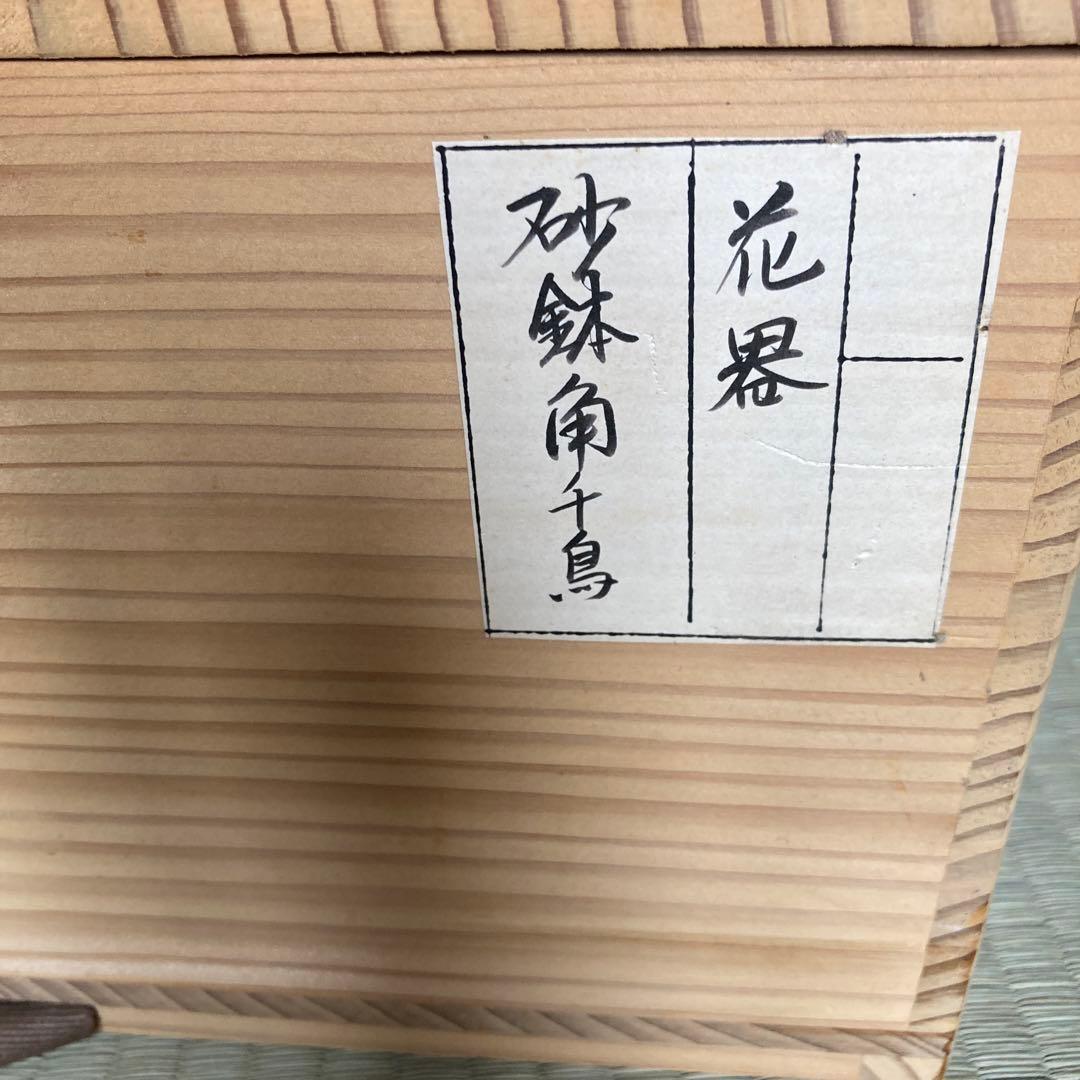 花器
砂鉢角千鳥